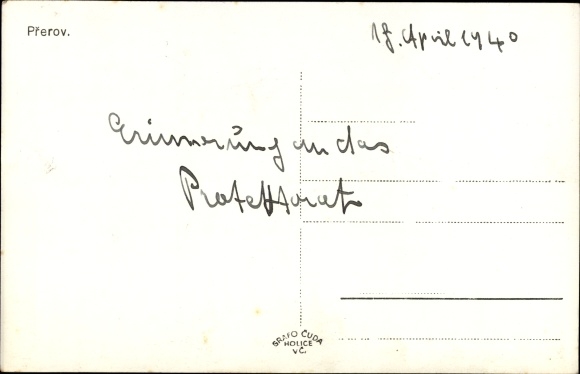 Přerov.
18. April 1940
Erinnerung an das
Protektorat
GRAFO ČUDA
HOLICE
VČ.